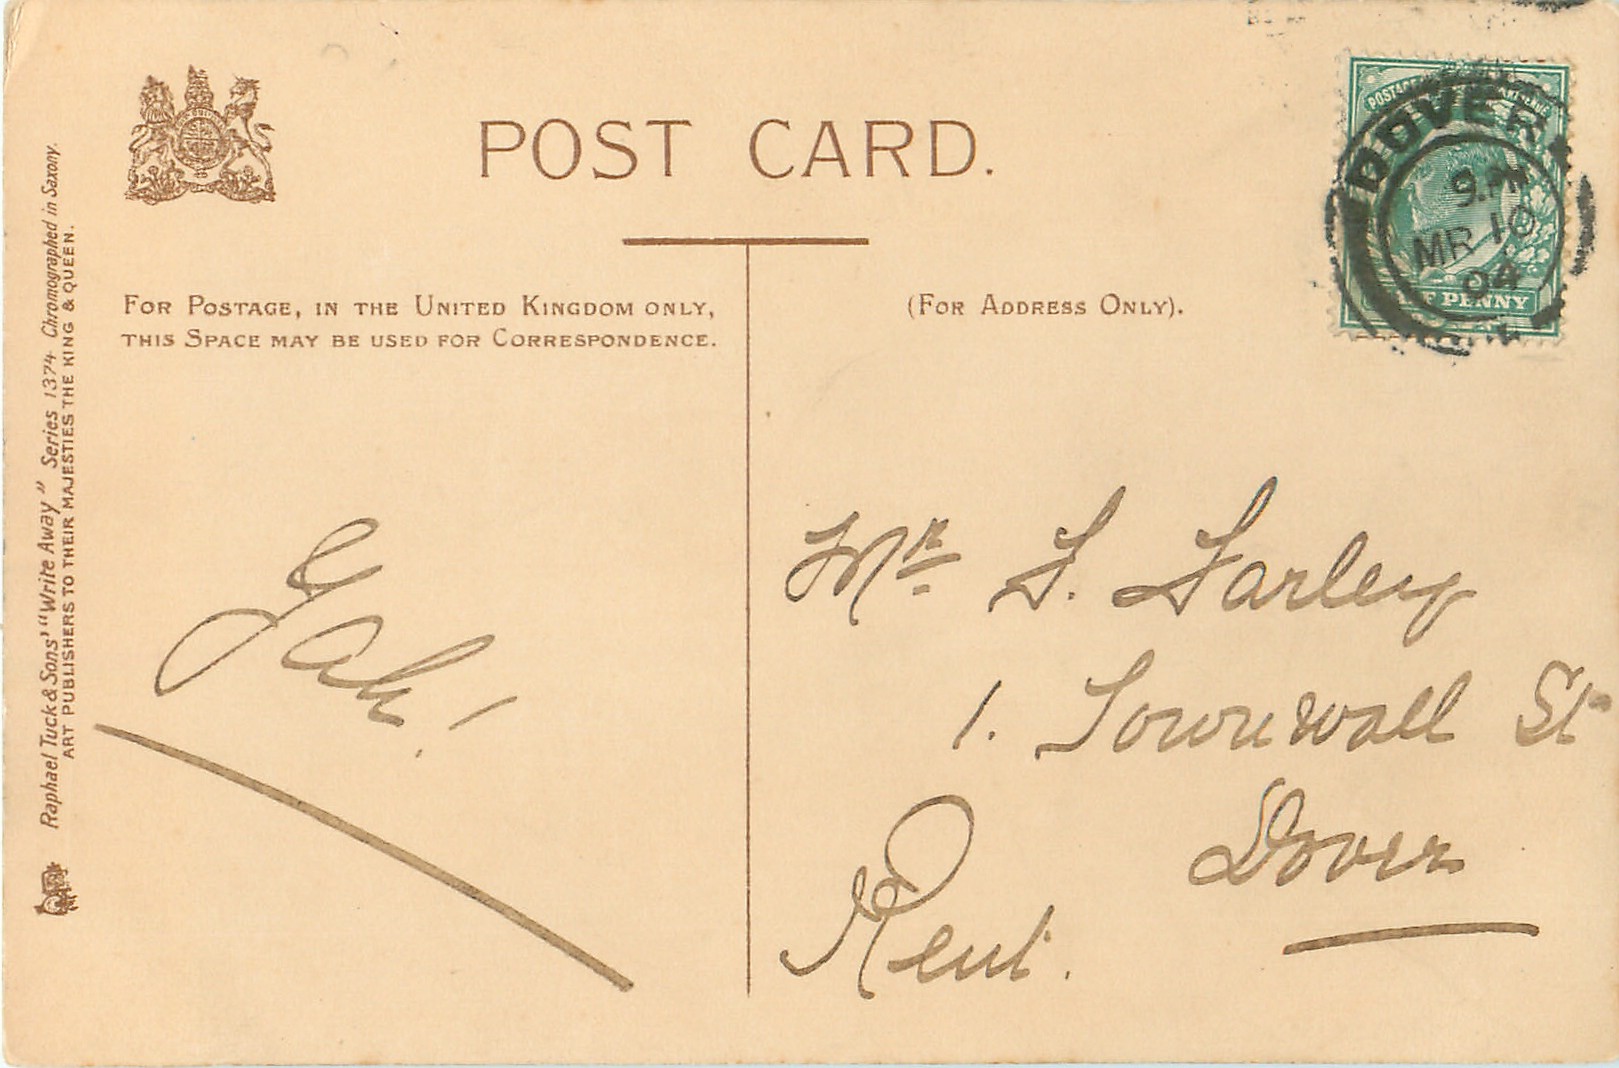 POST CARD.
FOR POSTAGE, IN THE UNITED KINGDOM ONLY,
THIS SPACE MAY BE USED FOR CORRESPONDENCE.
(FOR ADDRESS ONLY).
Raphael Tuck & Sons' "Write Away" Series 1374 Chromographed in Saxony.
ART PUBLISHERS TO THEIR MAJESTIES THE KING & QUEEN.
DOVER
9. PM
MR 10
04
PENNY
Gah!
Mr. F. Farley
1. Townwall St
Dover
Kent.